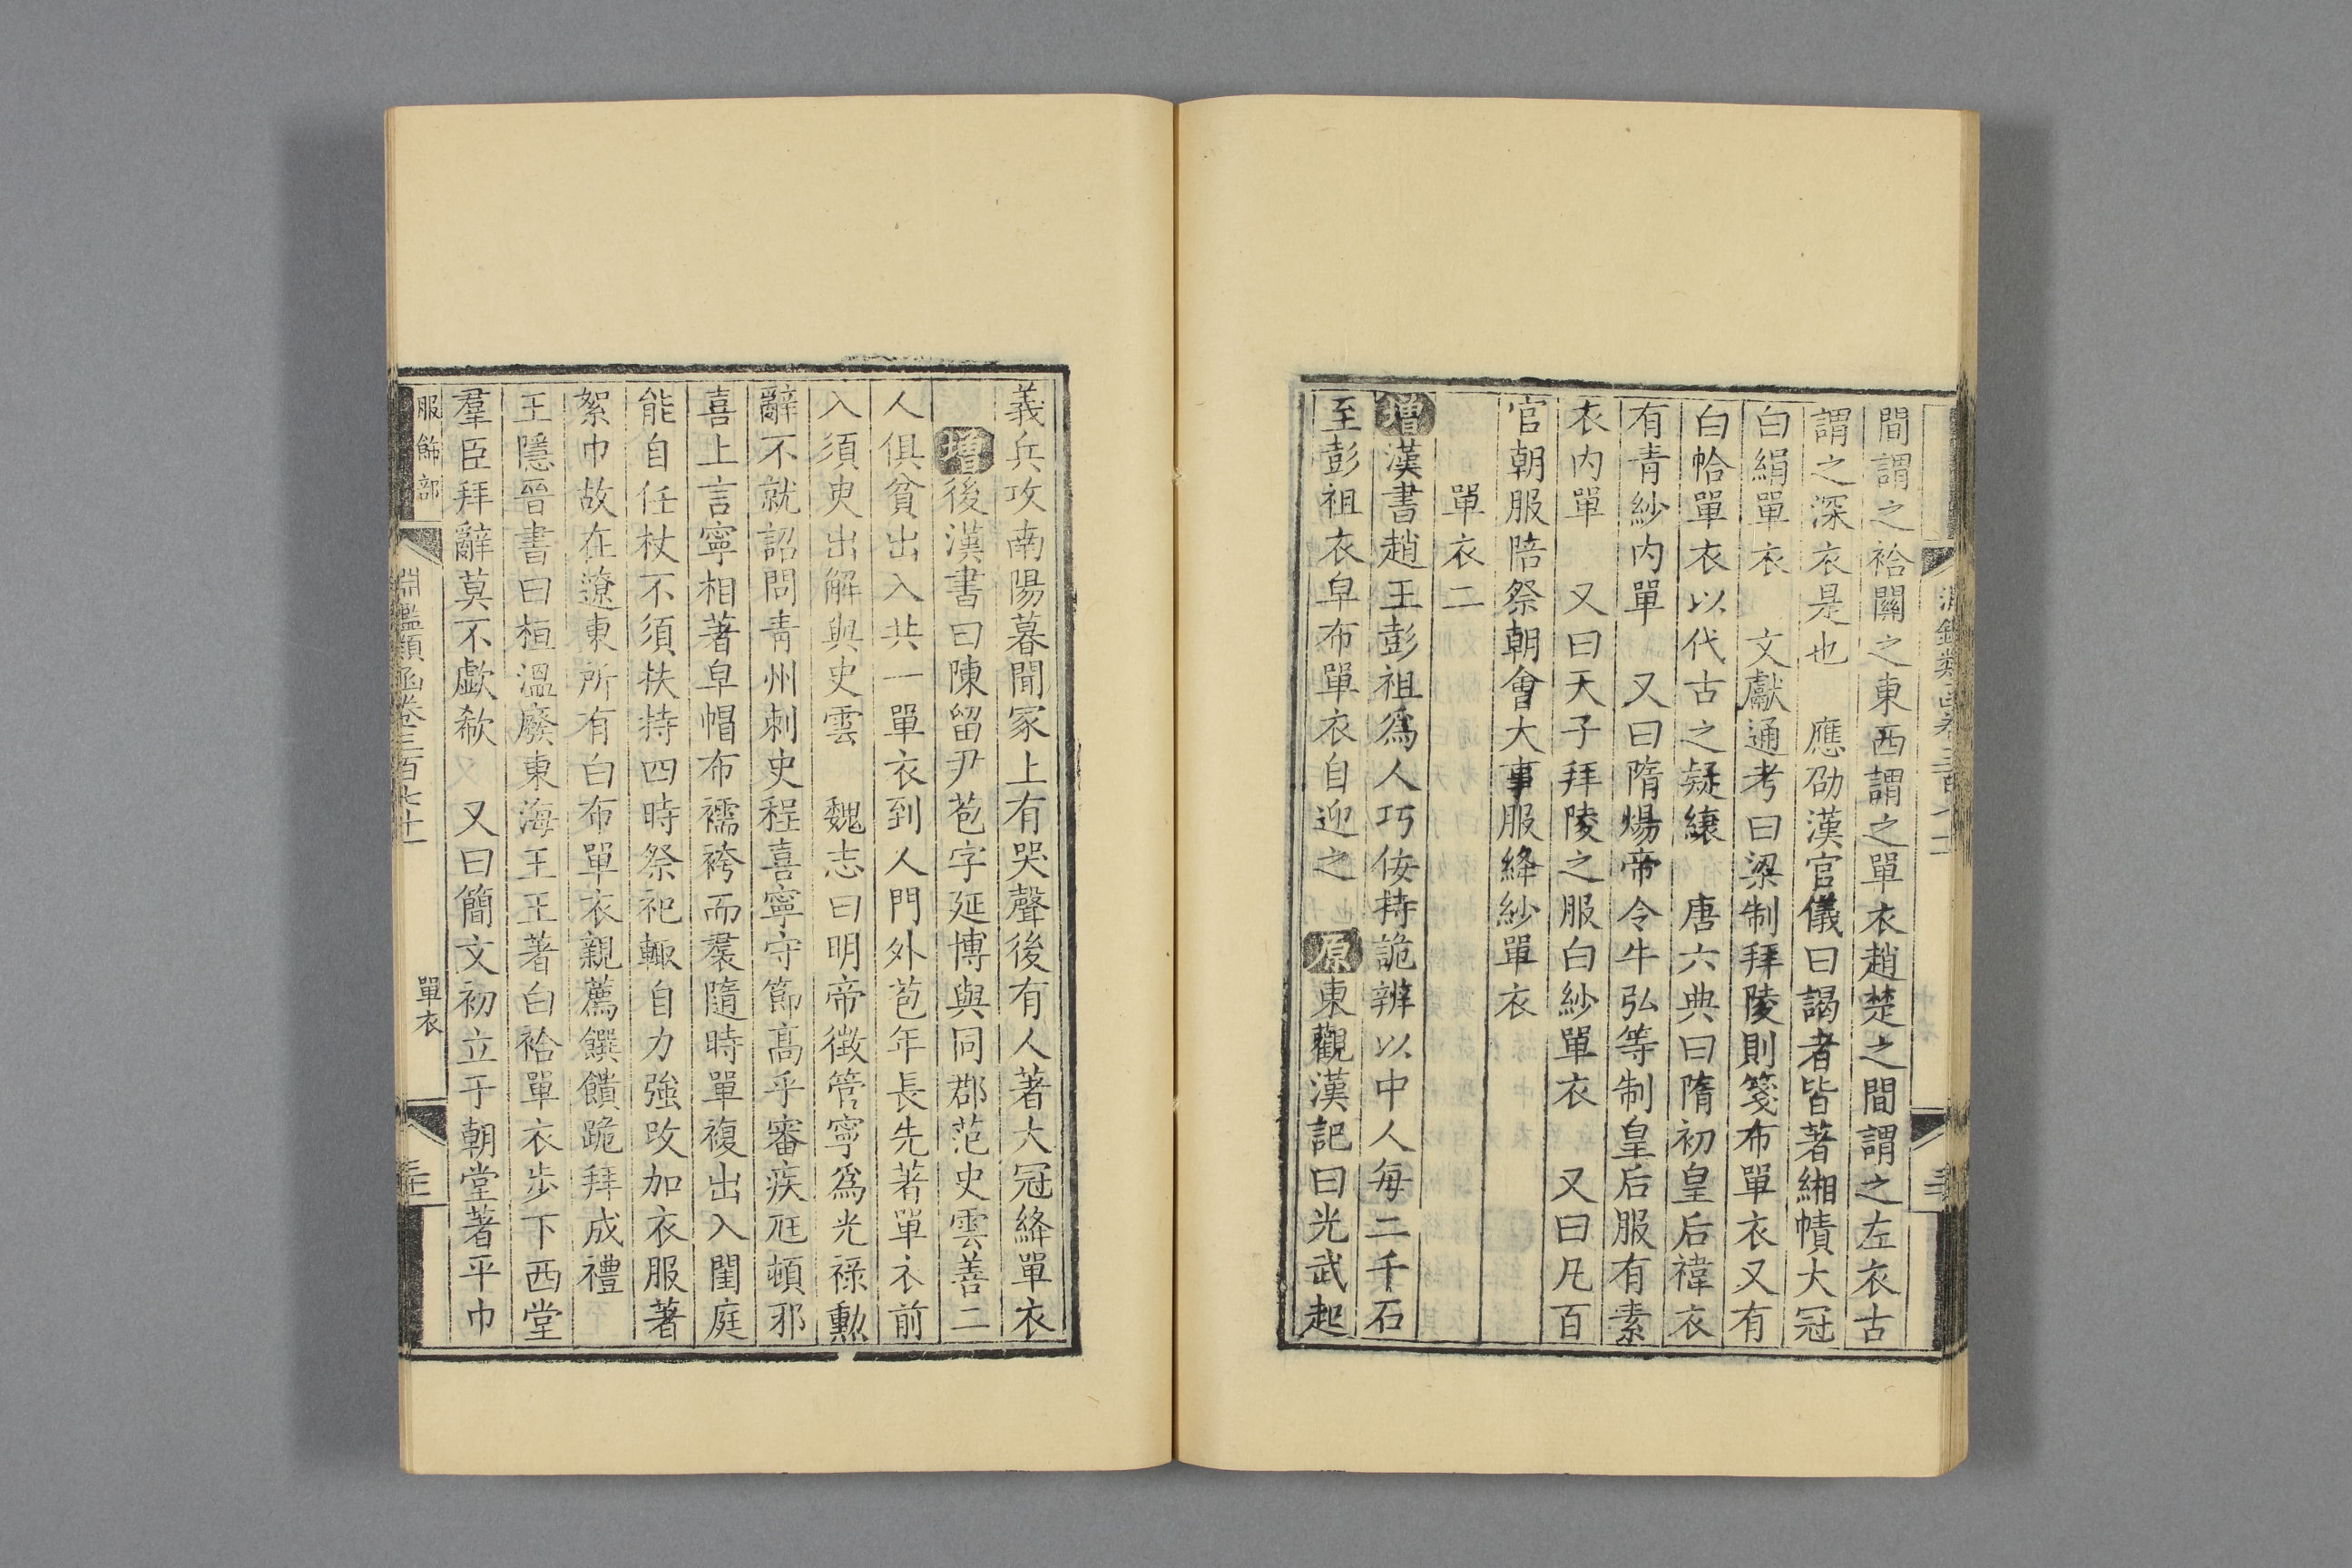 間謂之袷關之東西謂之單衣趙楚之間謂之左衣古
謂之深衣是也　應劭漢官儀曰謁者皆著緗幘大冠
白絹單衣　文獻通考曰梁制拜陵則箋布單衣又有
白帢單衣以代古之疑縗　唐六典曰隋初皇后褘衣
有青紗内單　又曰隋煬帝令牛弘等制皇后服有素
衣内單　又曰天子拜陵之服白紗單衣　又曰凡百
官朝服陪祭朝會大事服絳紗單衣
單衣二
增漢書趙王彭祖爲人巧佞持詭辨以中人每二千石
至彭祖衣皁布單衣自迎之　原東觀漢記曰光武起
義兵攻南陽暮聞冢上有哭聲後有人著大冠絳單衣
增後漢書曰陳留尹苞字延博與同郡范史雲善二
人俱貧出入共一單衣到人門外苞年長先著單衣前
入須臾出解與史雲　魏志曰明帝徵管寧爲光祿勲
辭不就詔問青州刺史程喜寧守節高乎審疾尫頓邪
喜上言寧相著皁帽布襦袴而裠隨時單複出入閨庭
能自任杖不須扶持四時祭祀輒自力強改加衣服著
絮巾故在遼東所有白布單衣親薦饌饋跪拜成禮
王隱晉書曰桓溫廢東海王王著白袷單衣步下西堂
羣臣拜辭莫不歔欷　又曰簡文初立于朝堂著平巾
服飾部
淵鑑類函卷三百七十一
單衣